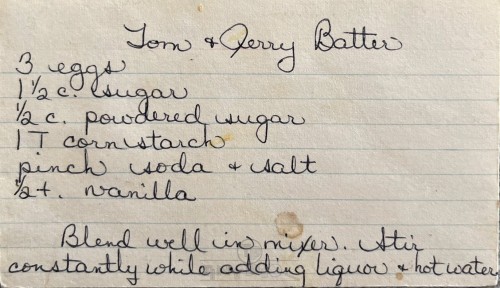 Tom & Jerry Batter
3 eggs
1 1/2 c. sugar
1/2 c. powdered sugar
1 T cornstarch
pinch soda & salt
1/2 t. vanilla
Blend well in mixer. Stir
constantly while adding liquor & hot water